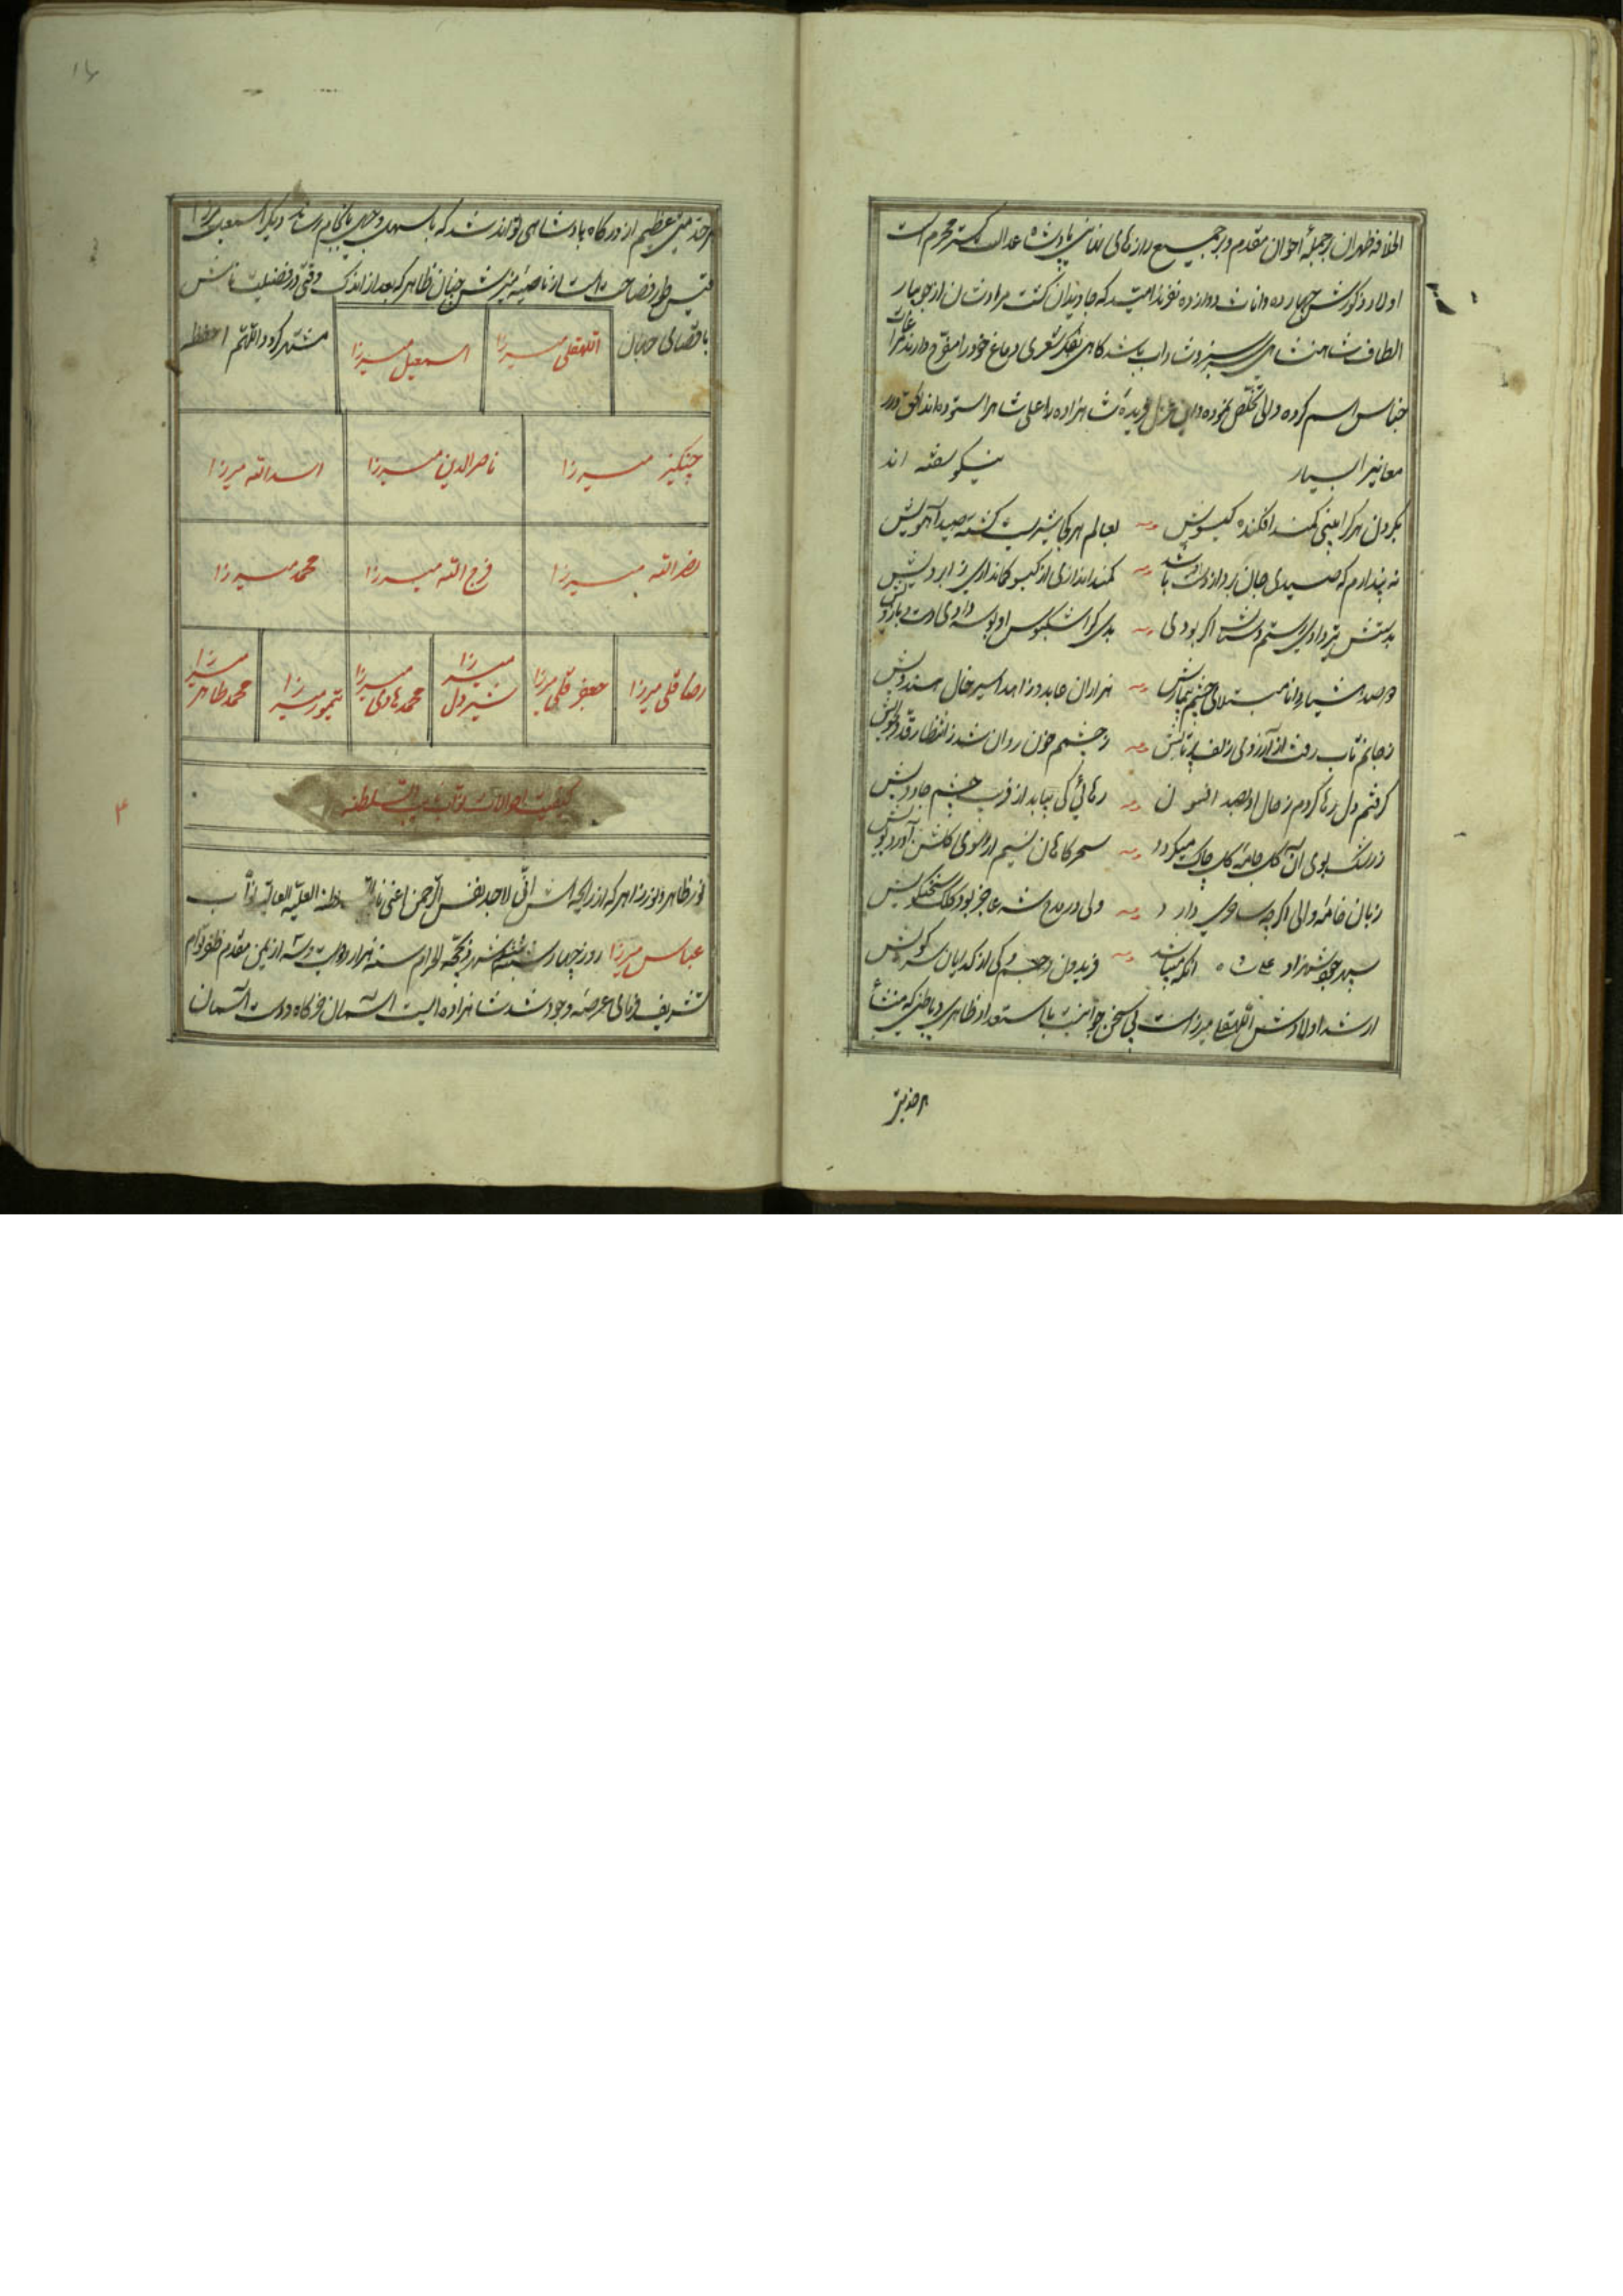 الخلافه طهران بر جملهٔ اخوان مقدم و بر جمیع رازهای نهانی پادشاه عدالت کستر محرم است
اولاد ذکورش چهارده و اناث دوازده نفرند امید که جاویدان کشت مرادشان از جویبار
الطاف شاهنشاهی سبز و شاداب باشد کاهی بفکر شعری دماغ خود را مفرح دارند
اسم کرده والی تخلص نموده و این غزل شاهزاده علی شاه را ستوده اند الحق درر
معانی را بسیار نیکو سفته اند
بکردن هر کرا بینی کمند افکنده کیسویش بعالم هر کجا شیریست کشته صید آهویش
نه پندارم که صیدی جان برد از دست باشد کمند اندازی از کیسو کمانداری ز ابرویش
بدستش بر دادی رستم دستان اکر بودی اشکبوس او بوسه دادی دست و بازویش
دو صد هشیار و دانا مبتلای چشم بیمارش هزاران عابد و زاهد اسیر خال هندویش
ز جانم تاب رفت از آرزوی زلف پرتابش ز چشمم خون روان شد ز انتظار قد دلجویش
کرفتم دل رها کردم ز خال او بصد افسون رهائی کی بیابد از فریب چشم جادویش
ز رشک بوی آن کل جامهٔ کل چاک میکردد سحرکاهان نسیم ار سوی کلشن آورد بویش
زبان خامهٔ والی اکرچه ساحری دارد ولی در مدح شه عاجز بود کلک سخنکویش
سپهر جود شهزاده علی شاه آنکه میباشد فریدون و جم و کی از کدایان سر کویش
ارشد اولادش اللهقلی میرزاست بی سخن جوانیست با استعداد ظاهری و باطنی که منشأ
هر خدمتی
هر خدمتی عظیم از درکاه پادشاهی تواند شد که باسهل وجهی بانجام رساند دیکر اسمعیل میرزا
از ناصیهٔ منیرش چنان ظاهر که بعد از اندک وقتی در فضیلت
باقصای جهان مشتهر کردد اللهم احفظ
اللهقلی میرزا اسمعیل میرزا
چنکیز میرزا ناصرالدین میرزا اسدالله میرزا
نصرالله میرزا فرج الله میرزا محمد میرزا
رضا قلی میرزا جعفر قلی میرزا شیردل میرزا محمد هادی میرزا تیمور میرزا محمد طاهر میرزا
کیفیت احوالات نواب نایب السلطنه
نور ظاهر و نور زاهر که از رایحه اش انی لاجد نفس الرحمن اعنی نایب السلطنه العلیه العالیه نواب
عباس میرزا روز چهارشنبه شهر ذیحجه الحرام سنه هزار و دویست و سه از یمن مقدم ظفر توأم
تشریف فرمای عرصهٔ وجود شد شاهزاده ایست آسمان خرکاه و دریست آسمان
۳
۱۶